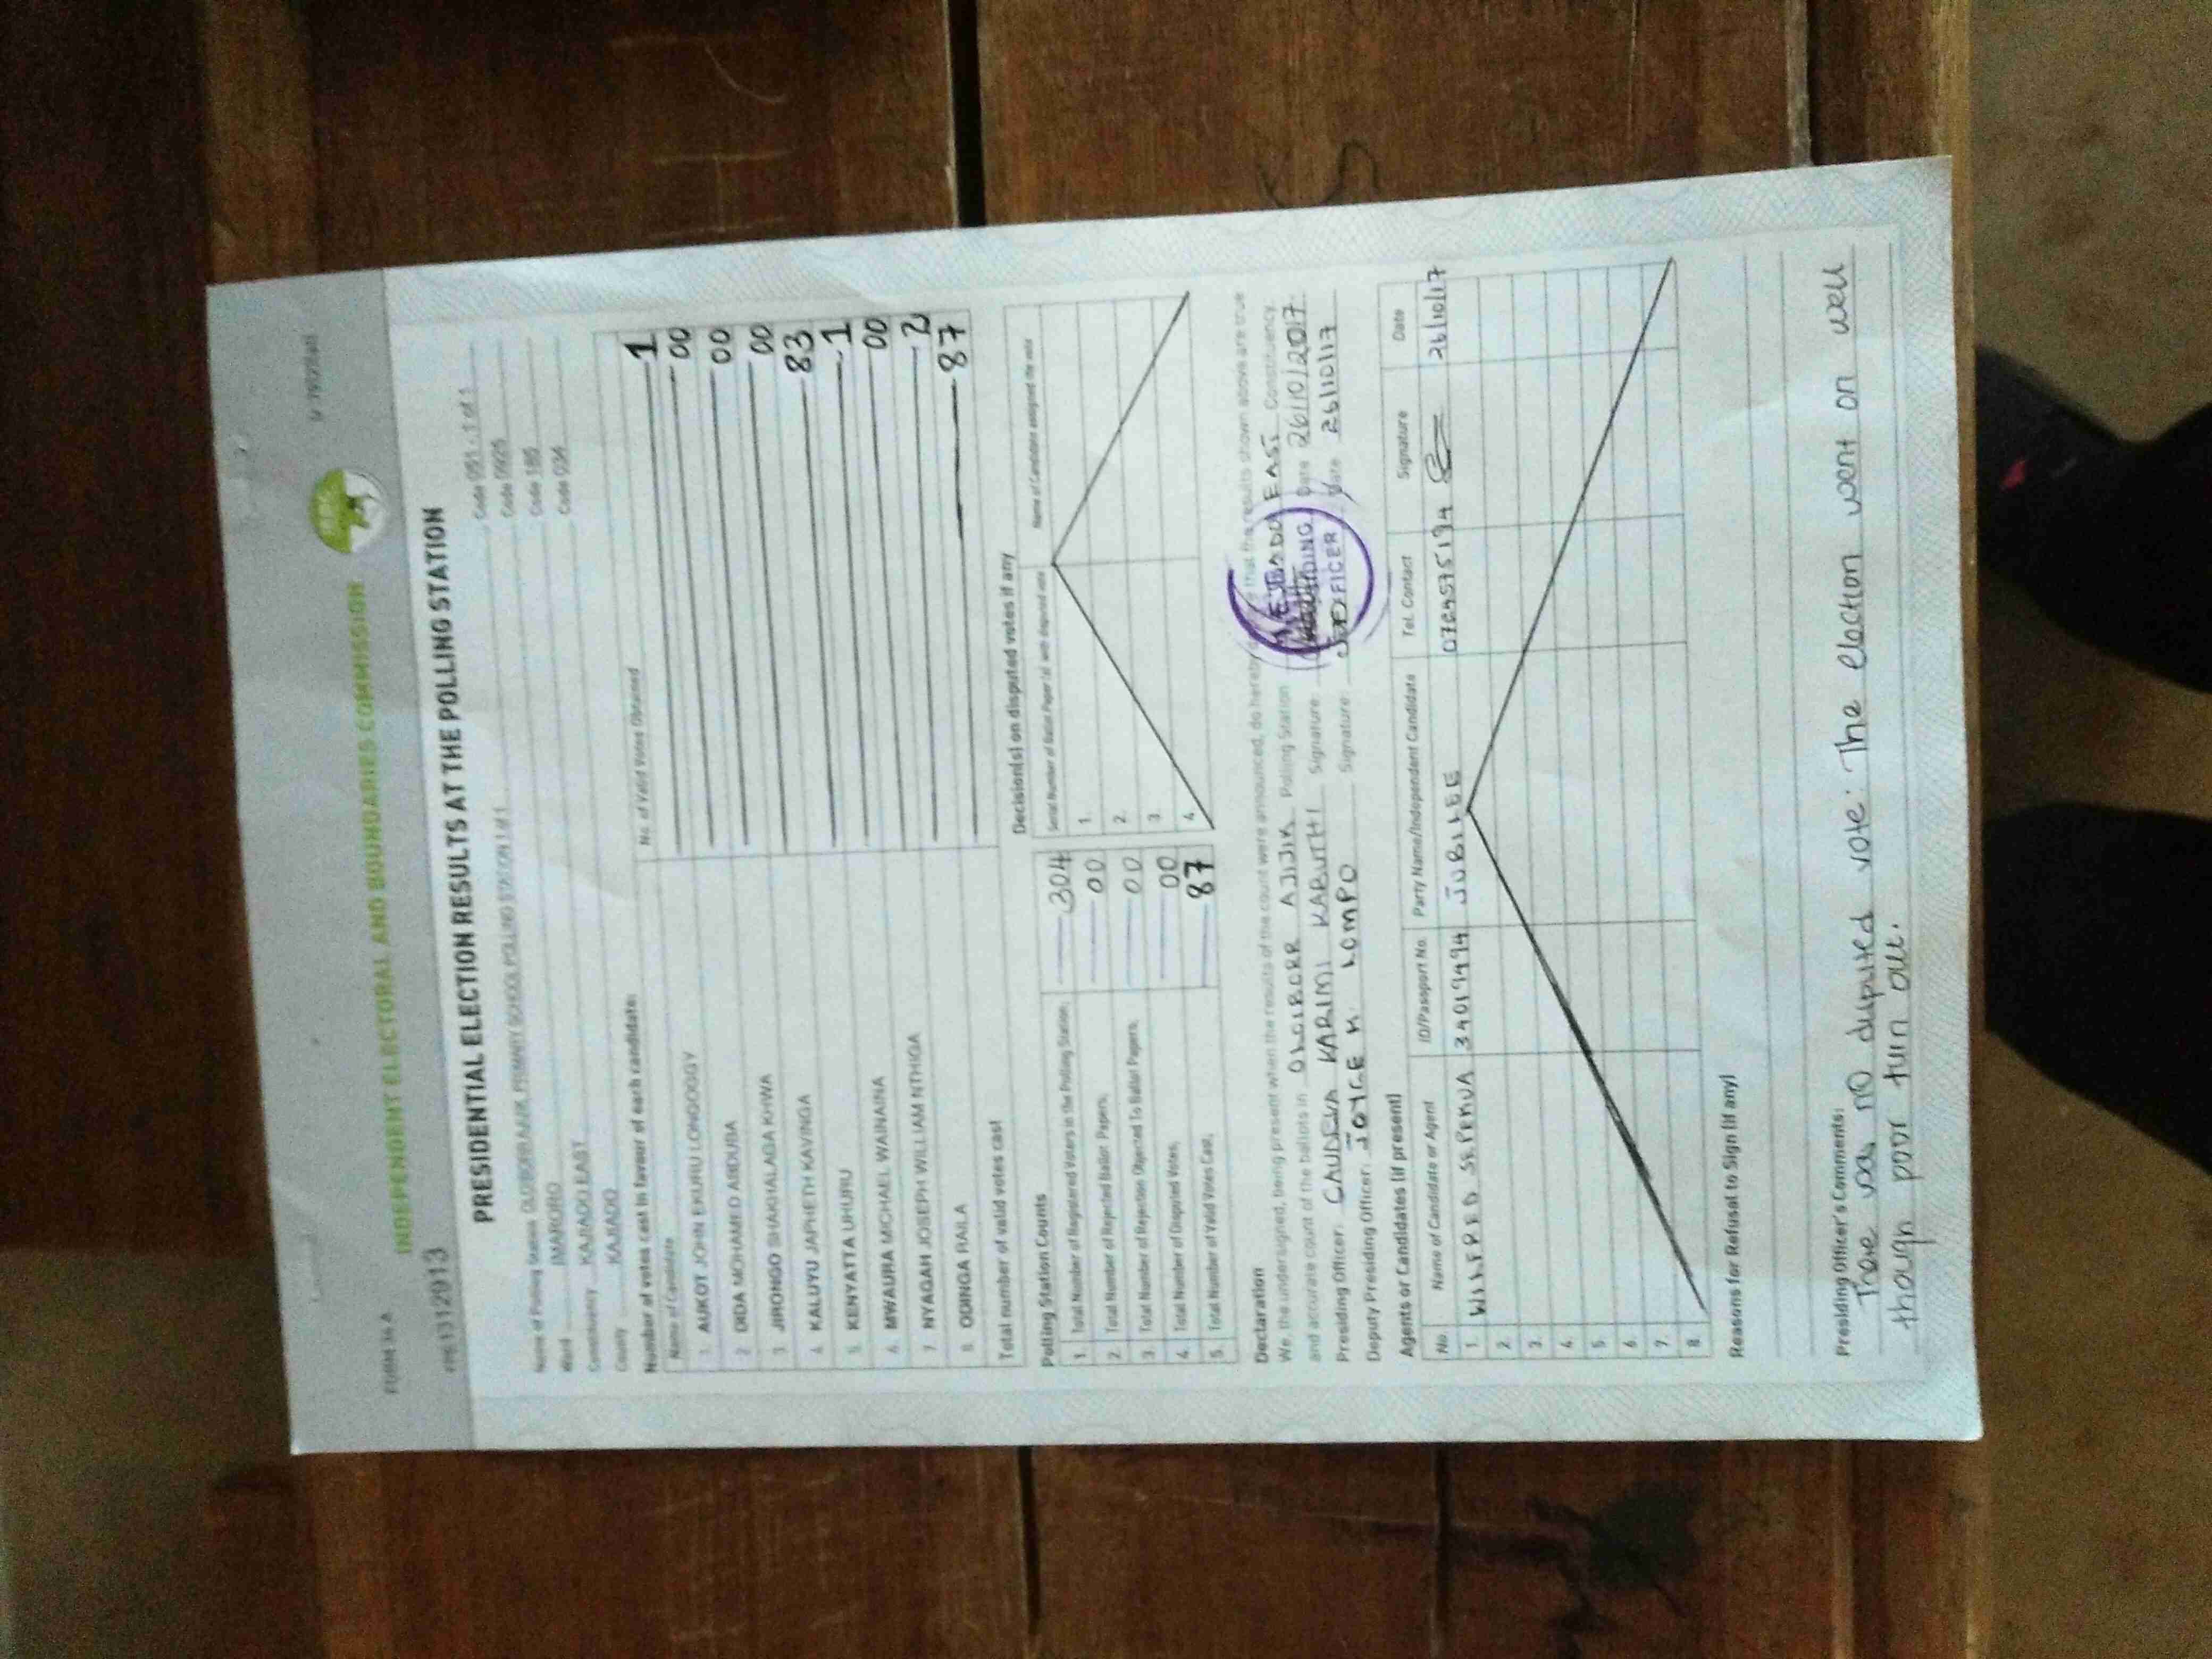 FORM 34 A
INDEPENDENT ELECTORAL AND BOUNDARIES COMMISSION
PRESIDENTIAL ELECTION RESULTS AT THE POLLING STATION
Name of Polling Station PRIMARY SCHOOL POLLING STATION 1 of 1 Code 051 - 1 of 1
Ward IMARORO Code 0925
Constituency KAJIADO EAST Code 185
County KAJIADO Code 034
Number of votes cast in favour of each candidate:
Name of Candidate No. of Valid Votes Obtained
1. AUKOT JOHN EKURU LONGOGGY 1
2. DIDA MOHAMED ABDUBA 00
3. JIRONGO SHAKHALAGA KHWA 00
4. KALUYU JAPHETH KAVINGA 00
5. KENYATTA UHURU 83
6. MWAURA MICHAEL WAINAINA 1
7. NYAGAH JOSEPH WILLIAM NTHIGA 00
8. ODINGA RAILA 2
Total number of valid votes cast 87
Polling Station Counts
1. Total Number of Registered Voters in the Polling Station; 304
2. Total Number of Rejected Ballot Papers; 00
3. Total Number of Rejection Objected To Ballot Papers; 00
4. Total Number of Disputed Votes; 00
5. Total Number of Valid Votes Cast; 87
Decision(s) on disputed votes if any
Serial Number of Ballot Paper (s) with disputed vote Name of Candidate assigned the vote
1.
2.
3.
4.
Declaration
We, the undersigned, being present when the results of the count were announced, do hereby that the results shown above are true
and accurate count of the ballots in AJIJIK Polling Station EAST Constituency.
Presiding Officer: KARIMI KABUTHI Signature: Date 26/10/2017
Deputy Presiding Officer: JOYCE K. LOMPO Signature: Date 26/10/17
OFFICER
Agents or Candidates (if present)
No. Name of Candidate or Agent ID/Passport No. Party Name/Independent Candidate Tel. Contact Signature Date
1. WILFRED 34019494 JUBILEE 26/10/17
2.
3.
4.
5.
6.
7.
8.
Reasons for Refusal to Sign (if any)
Presiding Officer's Comments:
There was no disputed vote: The election went on well
though poor turn out.